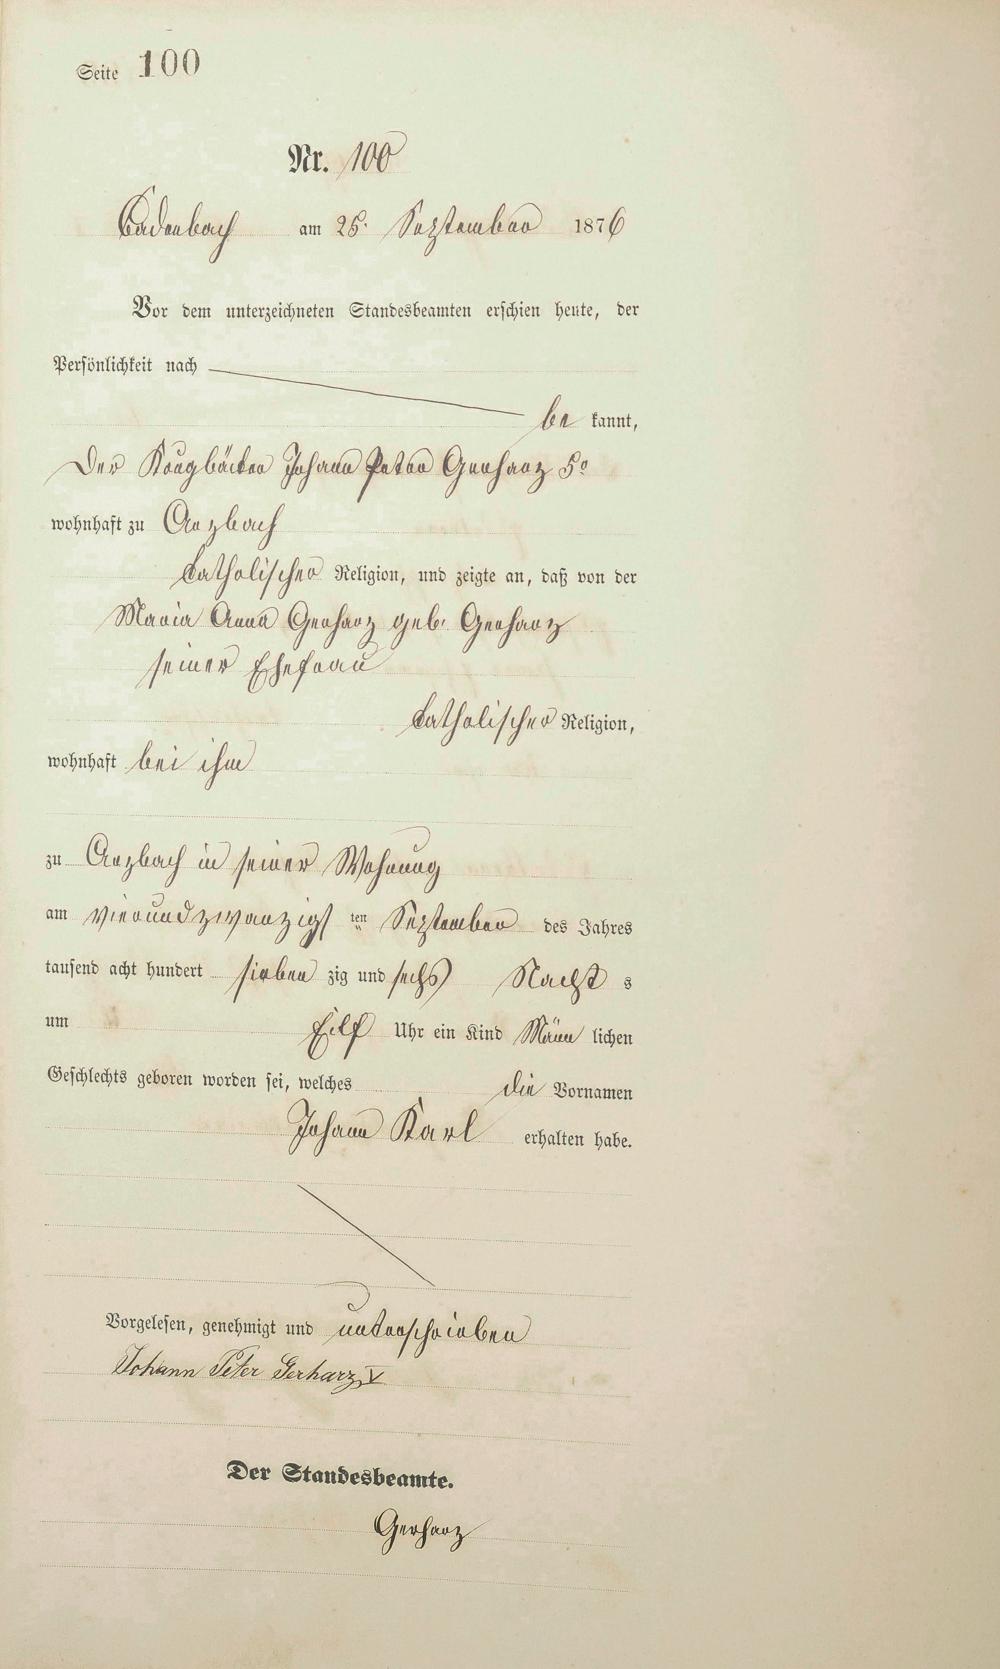 Seite 100
Nr. 100
Cadenbach am 25. September 1876
Vor dem unterzeichneten Standesbeamten erschien heute, der
Persönlichkeit nach
be kannt,
Der Krugbäcker Johann Peter Gerharz 5e
wohnhaft zu Arzbach
katholischer Religion, und zeigte an, daß von der
Maria Anna Gerharz geb. Gerharz
seiner Ehefrau
katholischer Religion,
wohnhaft bei ihm
zu Arzbach in seiner Wohnung
am vierundzwanzigs ten September des Jahres
tausend acht hundert sieben zig und sechs Nacht s
um Eilf Uhr ein Kind Männ lichen
Geschlechts geboren worden sei, welches die Vornamen
Johann Karl erhalten habe.
Vorgelesen, genehmigt und unterschrieben
Johann Peter Gerharz V
Der Standesbeamte.
Gerharz